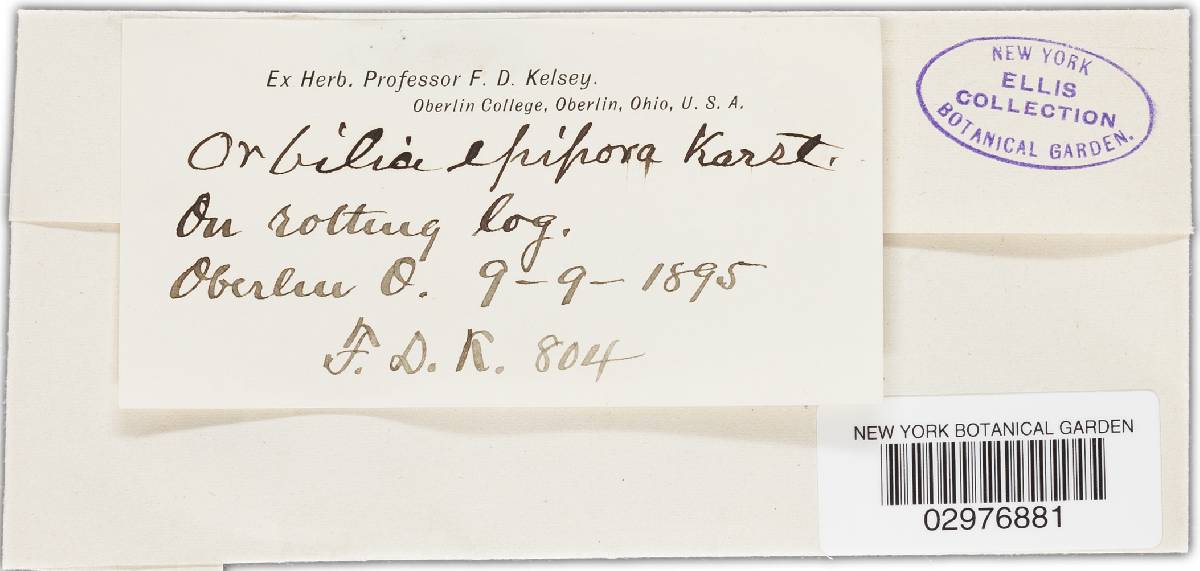 Ex Herb. Professor F. D. Kelsey.
Oberlin College, Oberlin, Ohio, U. S. A.
Orbilia epipora Karst.
On rotting log.
Oberlin O. 9-9-1895
F. D. K. 804
NEW YORK
ELLIS
COLLECTION
BOTANICAL GARDEN.
NEW YORK BOTANICAL GARDEN
02976881